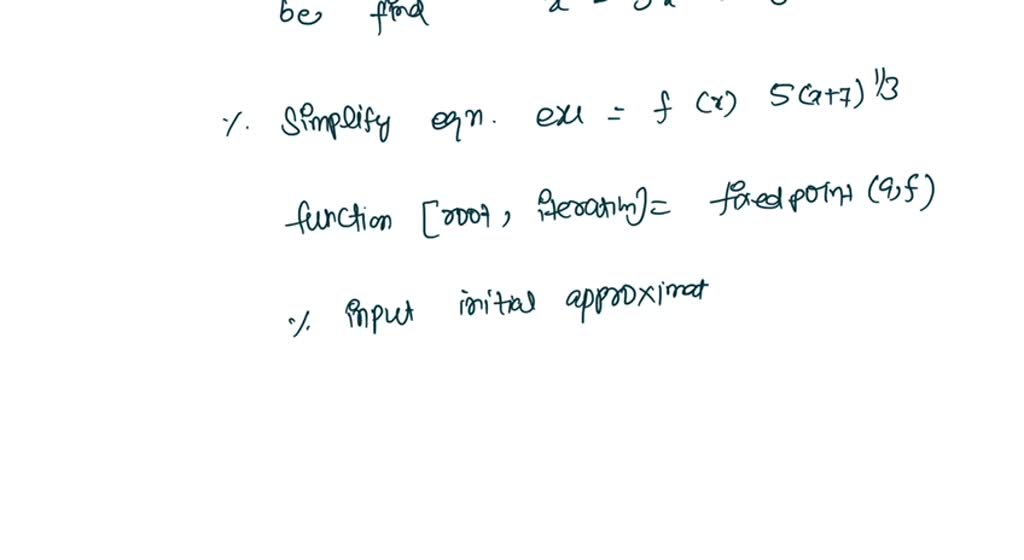 be find
% Simplify eqn. exe = f (x) 5(x+7)^1/3
function [root, iteration]= fixedpoint (a,f)
% input initial approximat